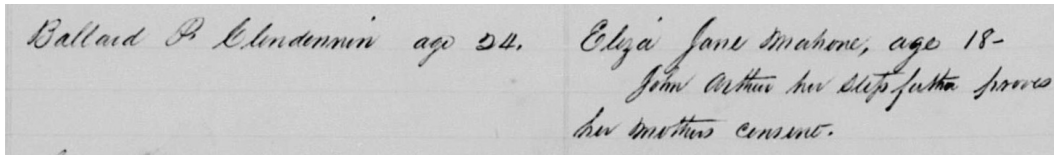 Ballard P. Clendennin age 24. Eliza Jane Mahone, age 18-
John Arthur her stepfather proves
her mothers consent.